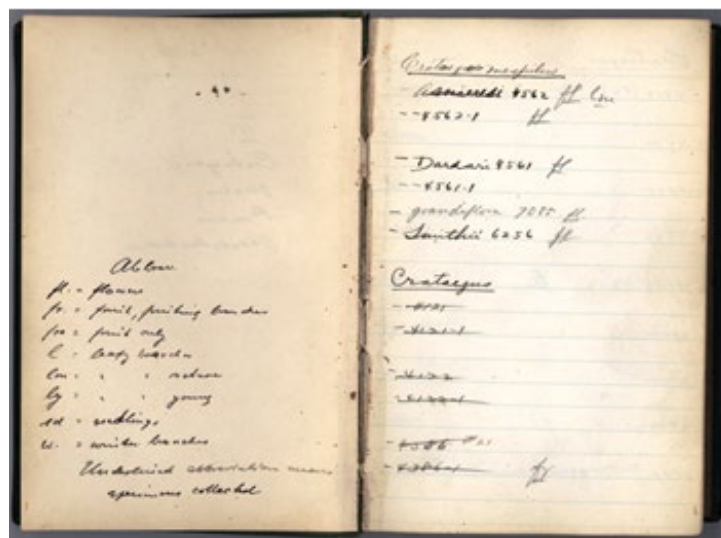 Abbrev
fl. = flowers
fr. = fruit, fruiting branches
fro = fruit only
l = leafy branches
lm = " " mature
ly = " " young
sd = seedlings
w. = winter branches
Underlined abbreviation means
specimens collected
Crataegomespilus
- Asnieresii 4562 fl lm
- - 4562-1 fl
- Dardari 4561 fl
- - 4561-1
- grandiflora 7055 fl
- Smithii 6256 fl
Crataegus
- 4121
- 4121-1
- 4122
- 4122-1
- 4386 #21
- 4386-1 fr